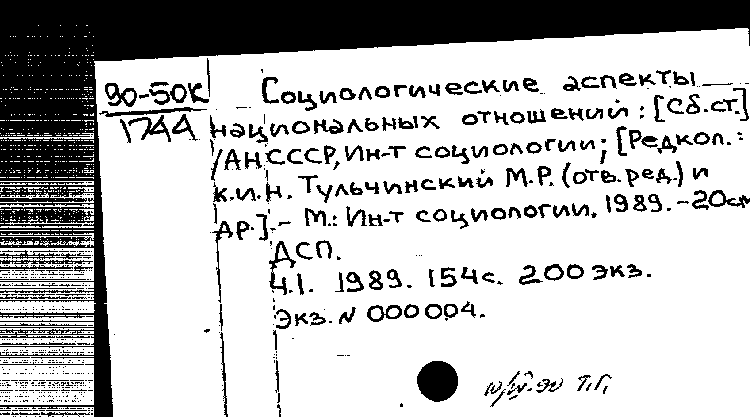 90-50К
1744
Социологические аспекты
национальных отношений: [Сб.ст.]
/АН СССР, Ин-т социологии; [Редкол.:
к.и.н. Тульчинский М.Р. (отв.ред.) и
др.].- М.: Ин-т социологии, 1989. -20см
ДСП.
Ч.I. 1989. 154с. 200 экз.
Экз. N 000004.
Т.Г.